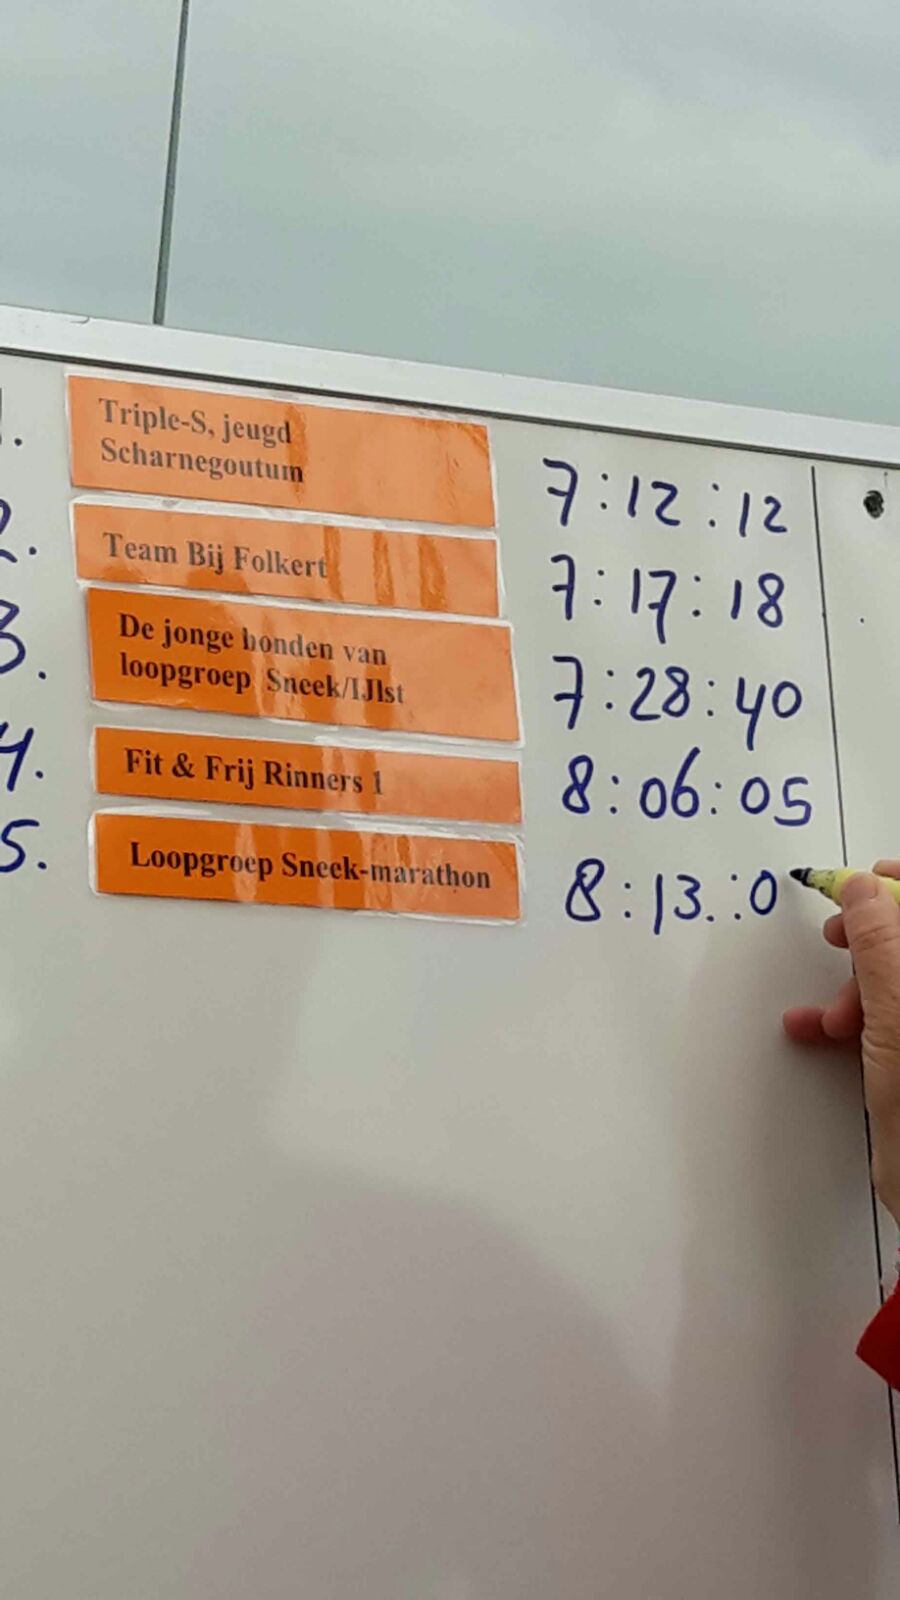 1. Triple-S, jeugd
Scharnegoutum 7:12:12
2. Team Bij Folkert 7:17:18
3. De jonge honden van
loopgroep Sneek/IJlst 7:28:40
4. Fit & Frij Rinners 1 8:06:05
5. Loopgroep Sneek-marathon 8:13:0